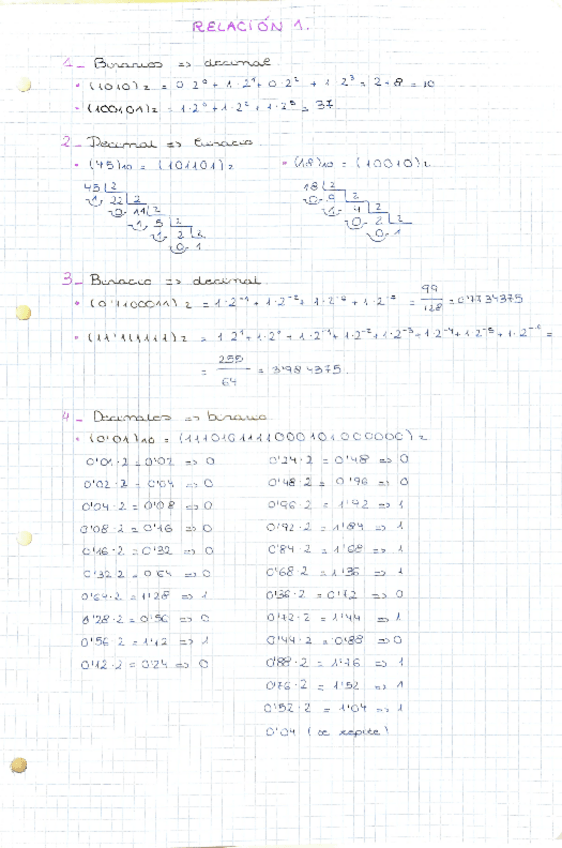 RELACIÓN 1.
1_ Binarios => decimal
• (1010)₂ = 0·2⁰ + 1·2¹ + 0·2² + 1·2³ = 2+8 = 10
• (100101)₂ = 1·2⁰ + 1·2² + 1·2⁵ = 37
2_ Decimal => binario
• (45)₁₀ = (101101)₂ • (18)₁₀ = (10010)₂
45 |2 18 |2
1 22 |2 0 9 |2
0 11 |2 1 4 |2
1 5 |2 0 2 |2
1 2 |2 0 1
0 1
3_ Binario => decimal
• (0'1100011)₂ = 1·2⁻¹ + 1·2⁻² + 1·2⁻⁶ + 1·2⁻⁸ = 99/128 = 0'7734375
• (11'111111)₂ = 1·2¹ + 1·2⁰ + 1·2⁻¹ + 1·2⁻² + 1·2⁻³ + 1·2⁻⁴ + 1·2⁻⁵ + 1·2⁻⁶ =
= 255/64 = 3'984375.
4_ Decimales => binario
• (0'01)₁₀ = (111101011110001010000000)₂
0'01·2 = 0'02 => 0 0'24·2 = 0'48 => 0
0'02·2 = 0'04 => 0 0'48·2 = 0'96 => 0
0'04·2 = 0'08 => 0 0'96·2 = 1'92 => 1
0'08·2 = 0'16 => 0 0'92·2 = 1'84 => 1
0'16·2 = 0'32 => 0 0'84·2 = 1'68 => 1
0'32·2 = 0'64 => 0 0'68·2 = 1'36 => 1
0'64·2 = 1'28 => 1 0'36·2 = 0'72 => 0
0'28·2 = 0'56 => 0 0'72·2 = 1'44 => 1
0'56·2 = 1'12 => 1 0'44·2 = 0'88 => 0
0'12·2 = 0'24 => 0 0'88·2 = 1'76 => 1
0'76·2 = 1'52 => 1
0'52·2 = 1'04 => 1
0'04 (se repite)